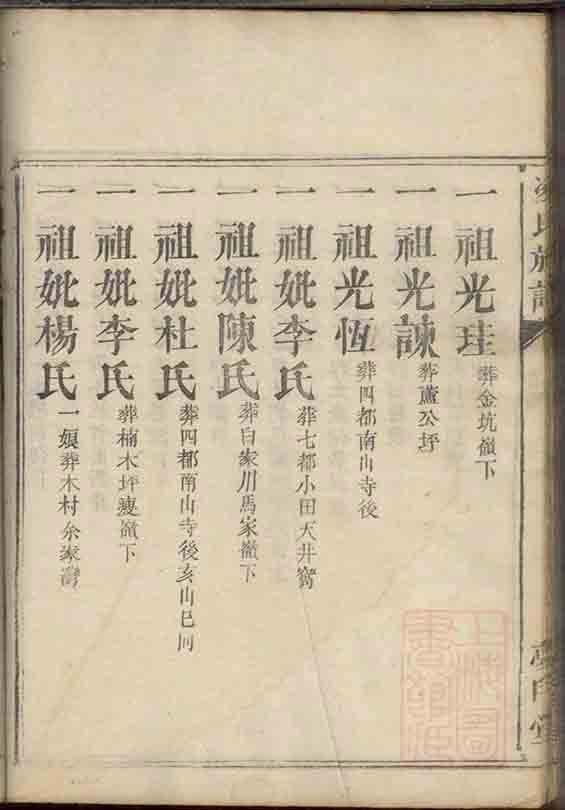 氏族譜
一祖光珪 葬金坑嶺下
一祖光諫 葬蘆公坪
一祖光恆 葬四都南山寺後
一祖妣李氏 葬七都小田天井窩
一祖妣陳氏 葬白家川馬家嶺下
一祖妣杜氏 葬四都南山寺後亥山巳向
一祖妣李氏 葬楠木坪瘦嶺下
一祖妣楊氏 一娘葬木村余家灣
上海圖書館藏